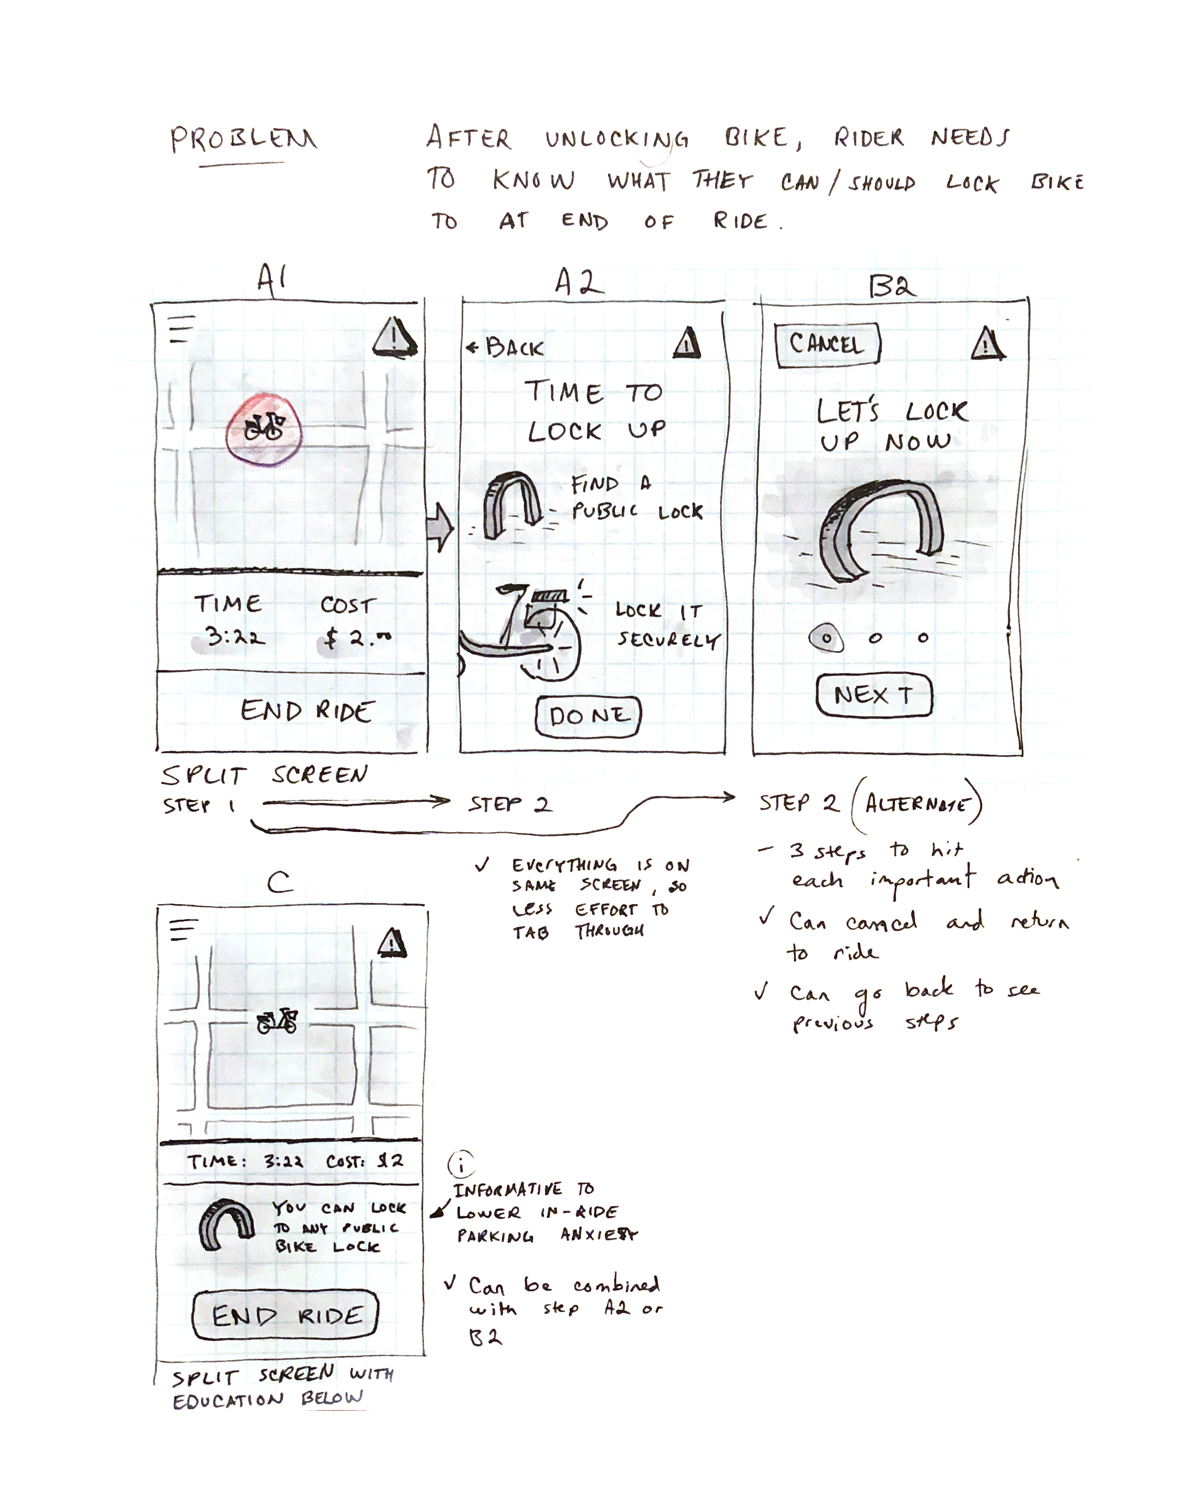 PROBLEM
AFTER UNLOCKING BIKE, RIDER NEEDS
TO KNOW WHAT THEY CAN/SHOULD LOCK BIKE
TO AT END OF RIDE.
A1
!
TIME COST
3:22 $2.00
END RIDE
SPLIT SCREEN
STEP 1
A2
← BACK
!
TIME TO
LOCK UP
FIND A
PUBLIC LOCK
LOCK IT
SECURELY
DONE
STEP 2
✓ EVERYTHING IS ON
SAME SCREEN, SO
LESS EFFORT TO
TAB THROUGH
B2
CANCEL
!
LET'S LOCK
UP NOW
NEXT
STEP 2 (ALTERNATE)
- 3 steps to hit
each important action
✓ Can cancel and return
to ride
✓ Can go back to see
previous steps
C
!
TIME: 3:22 COST: $2
YOU CAN LOCK
TO ANY PUBLIC
BIKE LOCK
END RIDE
SPLIT SCREEN WITH
EDUCATION BELOW
i
INFORMATIVE TO
LOWER IN-RIDE
PARKING ANXIETY
✓ Can be combined
with step A2 or
B2